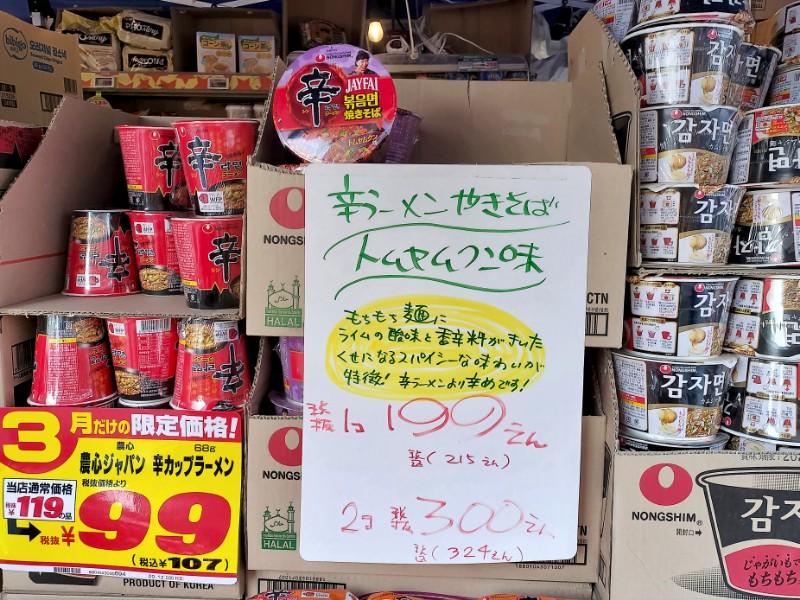 bibigo
NONGSHIM
JAYFAI
辛
볶음면
焼きそば
トムヤムクン
辛
辛
辛
NONGSHIM
HALAL
辛ラーメンやきそば
トムヤムクン味
もちもち麺に
ライムの酸味と香辛料がきいた
くせになるスパイシーな味わいが
特徴! 辛ラーメンより辛めです!
税抜 1コ 199えん
税込(215えん)
2コ 税抜 300えん
税込(324えん)
3月だけの限定価格!
農心 68g
農心ジャパン 辛カップラーメン
当店通常価格
税抜¥119の品
税抜価格より
税抜¥99
(税込¥107)
PRODUCT OF KOREA
NONGSHIM
HALAL
CTN
감자면
감자면
감자면
감자면
감자면
NONGSHIM
開封口
감자
じゃがいもで
もちもち